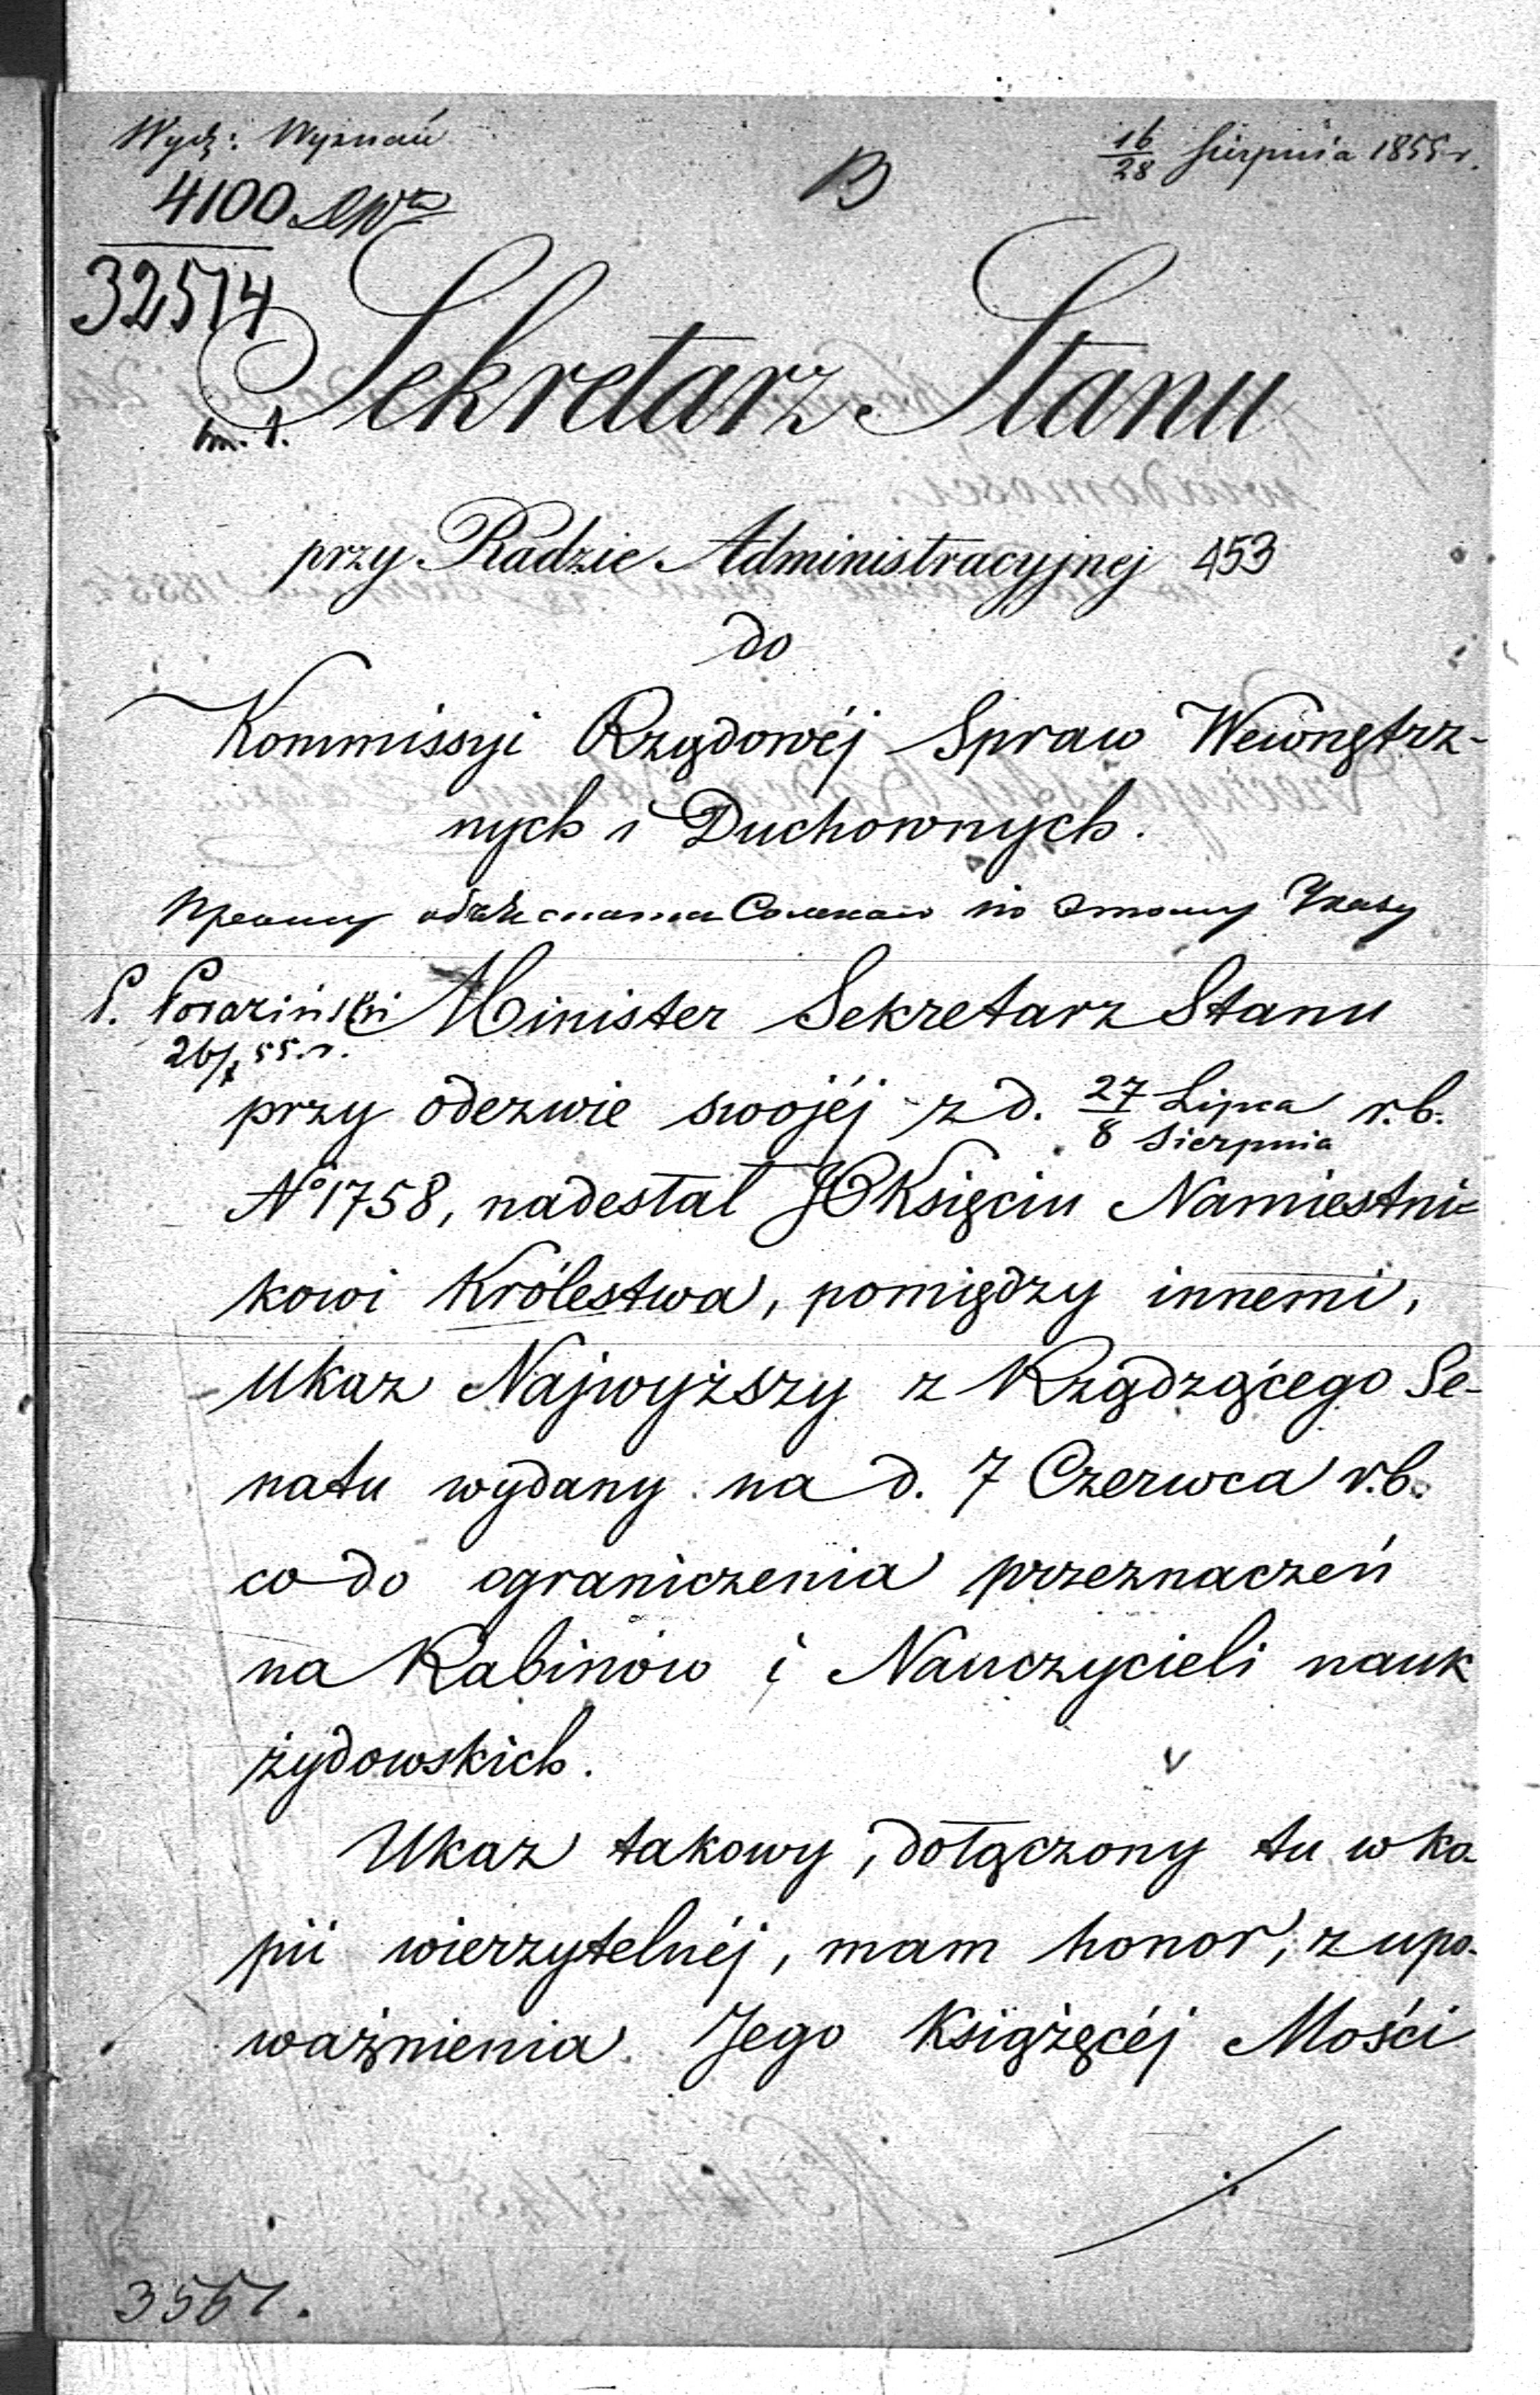 Wydz: Wyznań
16/28 Sierpnia 1855 r.
B
4100
32514
Sekretarz Stanu
przy Radzie Administracyjnej 453
do
Kommissyi Rządowéj Spraw Wewnętrz-
nych i Duchownych.
по этому Указу
P.
26/ 55. r.
Minister Sekretarz Stanu
przy odezwie swojéj z d. 27 Lipca / 8 Sierpnia r. b.
No 1758, nadesłał JO Księciu Namiestni-
kowi Królestwa, pomiędzy innemi,
Ukaz Najwyższy z Rządzącego Se-
natu wydany na d. 7 Czerwca r. b.
co do ograniczenia przeznaczeń
na Rabinów i Nauczycieli nauk
żydowskich.
Ukaz takowy, dołączony tu w ko
pii wierzytelnéj, mam honor, z upo-
ważnienia Jego Książęcéj Mości
3561.